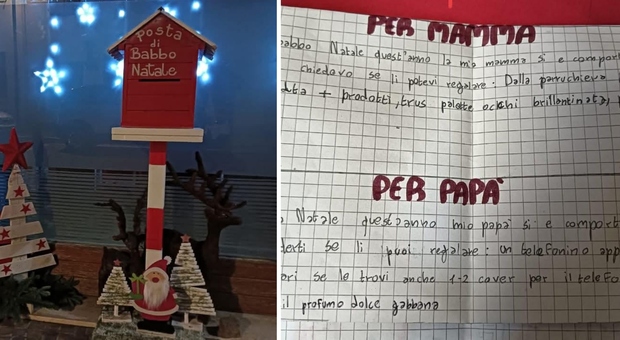 Posta
di
Babbo
Natale
PER MAMMA
babbo Natale quest'anno la mia mamma si e comport
chiedavo se li potevi regalare: Dalla parruchiera
+ prodotti, trus palette occhi brillantinata,
PER PAPA'
Natale quest'anno mio papà si e comport
derti se li puoi regalare: un telefonino app
ori se le trovi anche 1-2 cover per il telefo
il profumo dolce gabbana